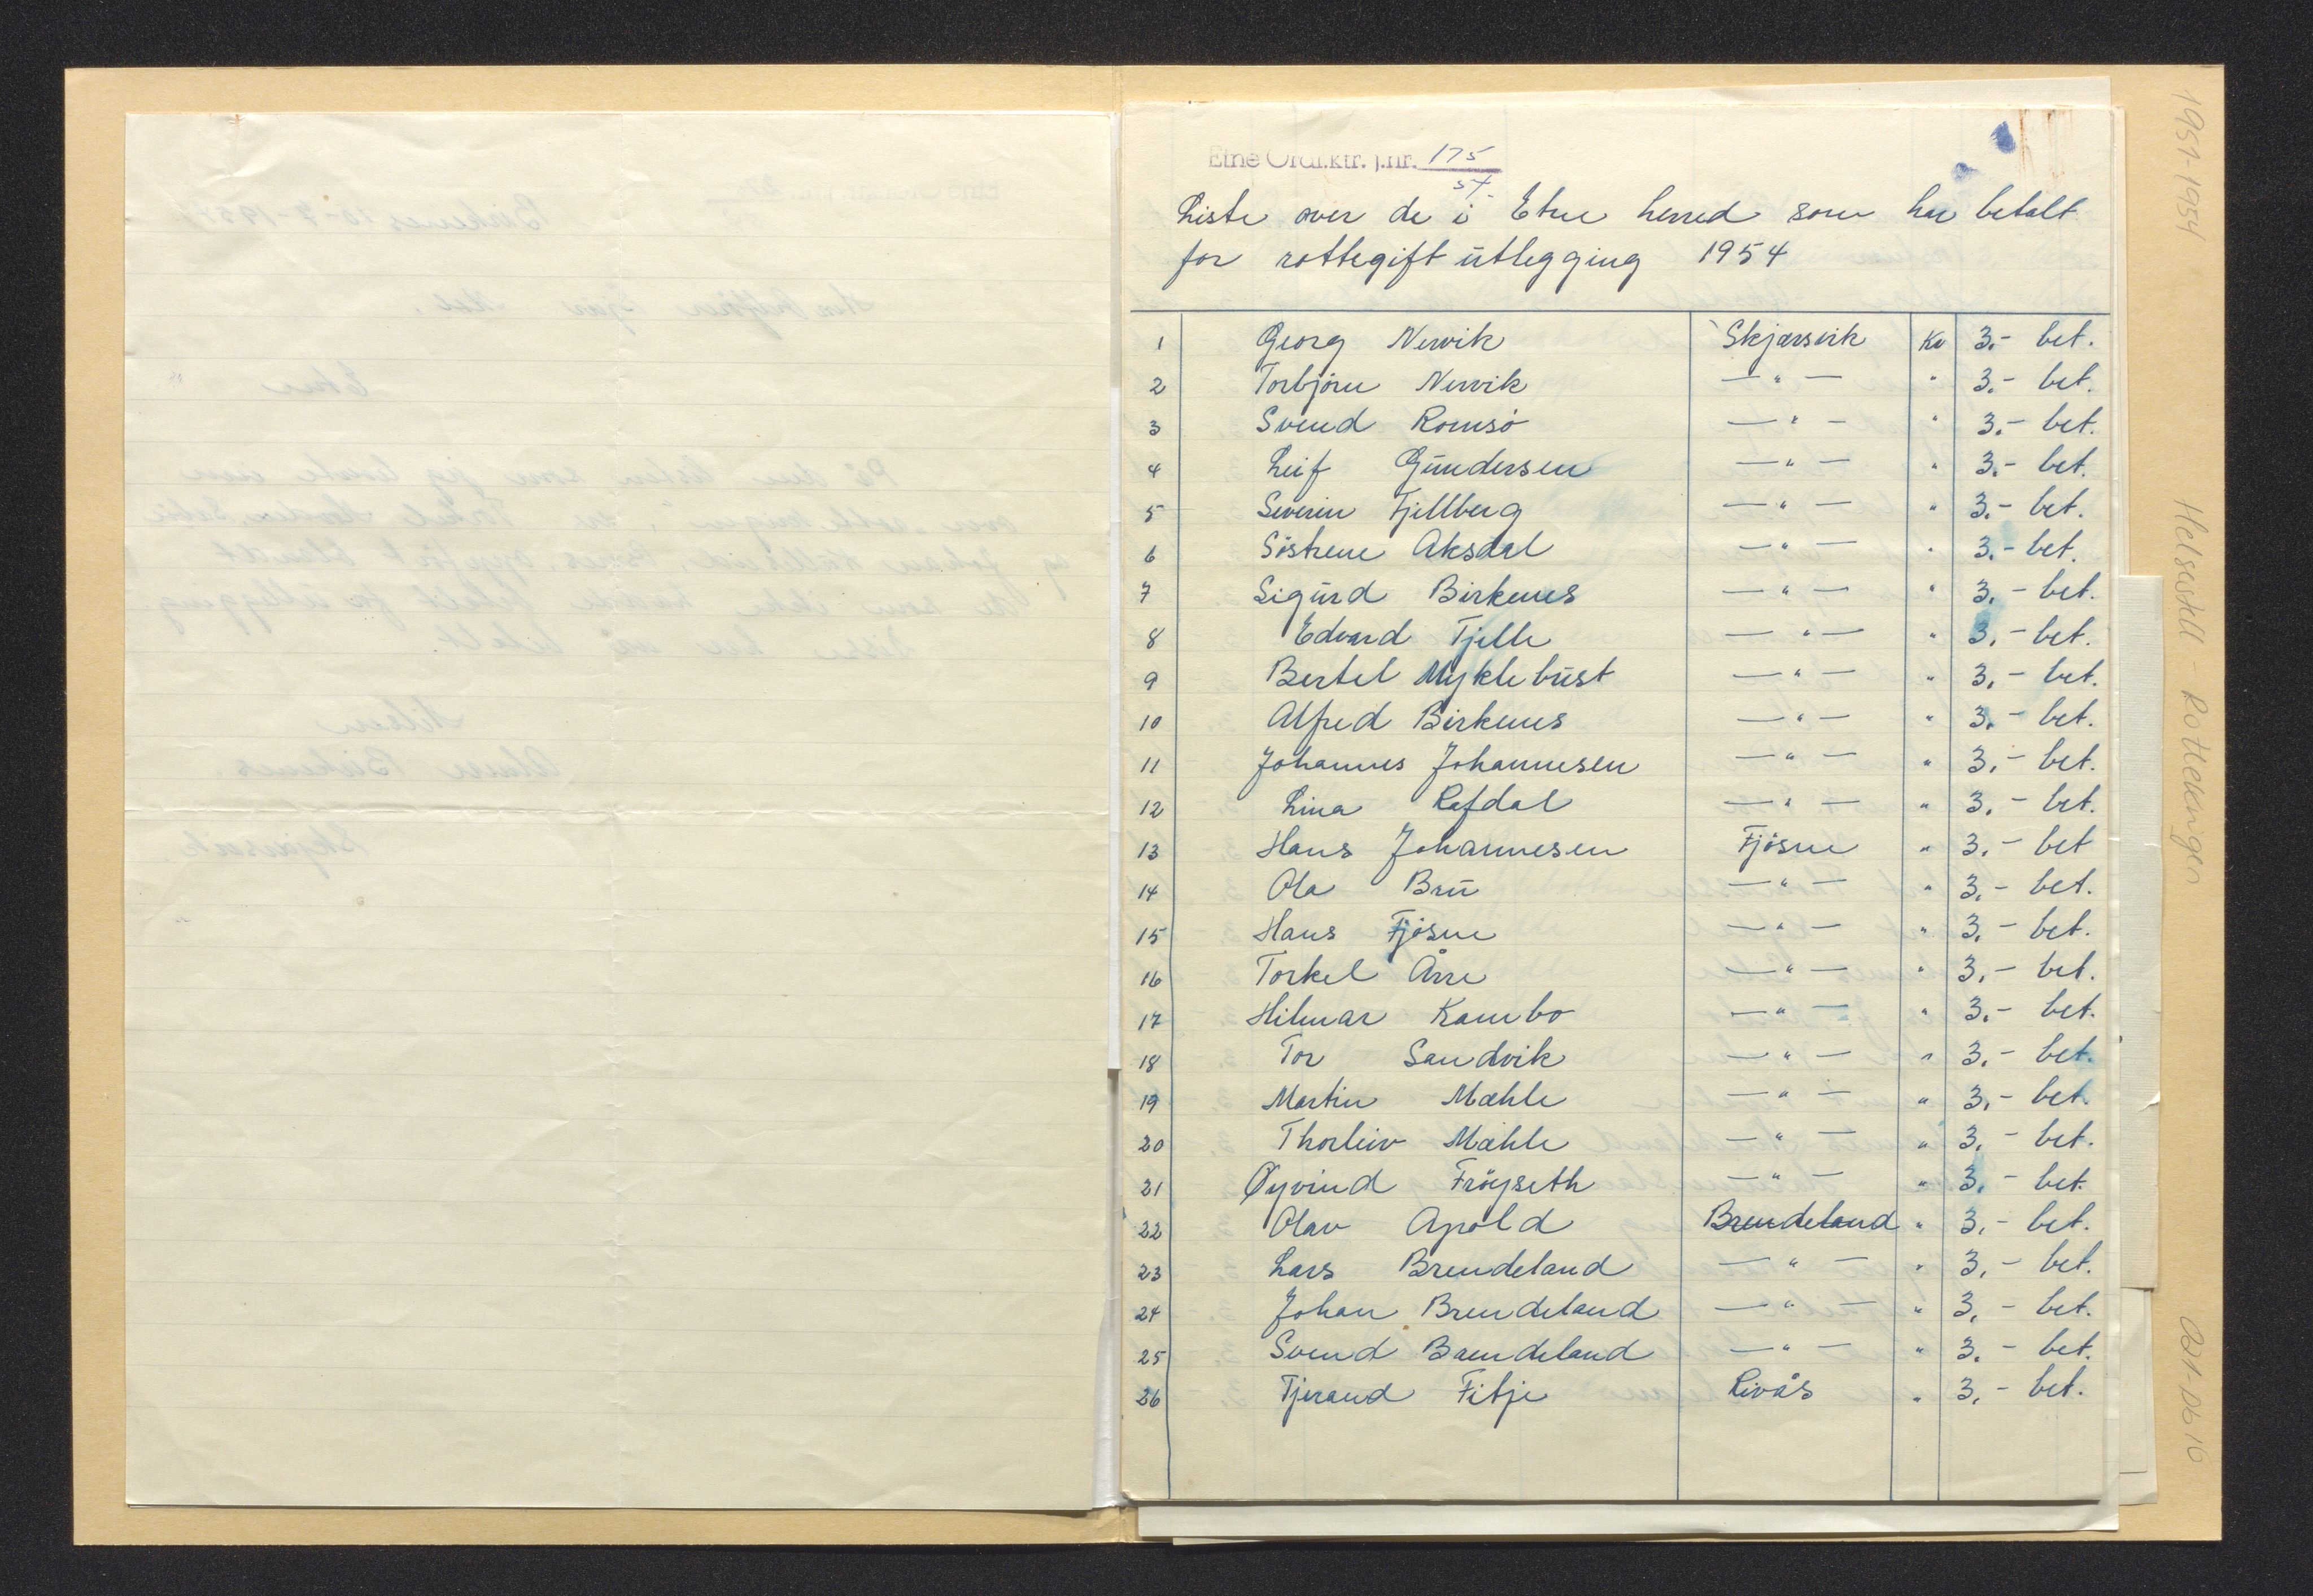 Etne Ordf.ktr. j.nr. 175
54
Liste over de i Etne herred som har betalt
for rottegift utlegging 1954
1 Georg Nervik Skjærsvik Kr 3.- bet.
2 Torbjörn Nervik — " — " 3.- bet.
3 Svend Romsö — " — " 3.- bet.
4 Leif Gundersen — " — " 3.- bet.
5 Severin Fjellberg — " — " 3.- bet.
6 Söstrene Aksdal — " — " 3.- bet.
7 Sigurd Birkenes — " — " 3.- bet.
8 Edvard Tjelle — " — " 3.- bet.
9 Bertel Myklebust — " — " 3.- bet.
10 Alfred Birkenes — " — " 3.- bet.
11 Johannes Johannesen — " — " 3.- bet.
12 Lina Refdal — " — " 3.- bet.
13 Hans Johannesen Fjösne " 3.- bet
14 Ola Bru — " — " 3.- bet.
15 Hans Fjösne — " — " 3.- bet.
16 Torkel Årre — " — " 3.- bet.
17 Hilmar Kambo — " — " 3.- bet.
18 Tor Sandvik — " — " 3.- bet.
19 Martin Mæhle — " — " 3.- bet.
20 Thorleiv Mæhle — " — " 3.- bet.
21 Øyvind Fröyseth — " — " 3.- bet.
22 Olav Apold Brendeland " 3.- bet.
23 Lars Brendeland — " — " 3.- bet.
24 Johan Brendeland — " — " 3.- bet.
25 Svend Brendeland — " — " 3.- bet.
26 Tjerand Fitje Livås " 3.- bet.
1951-1954 Helsestell - Rottekrigen